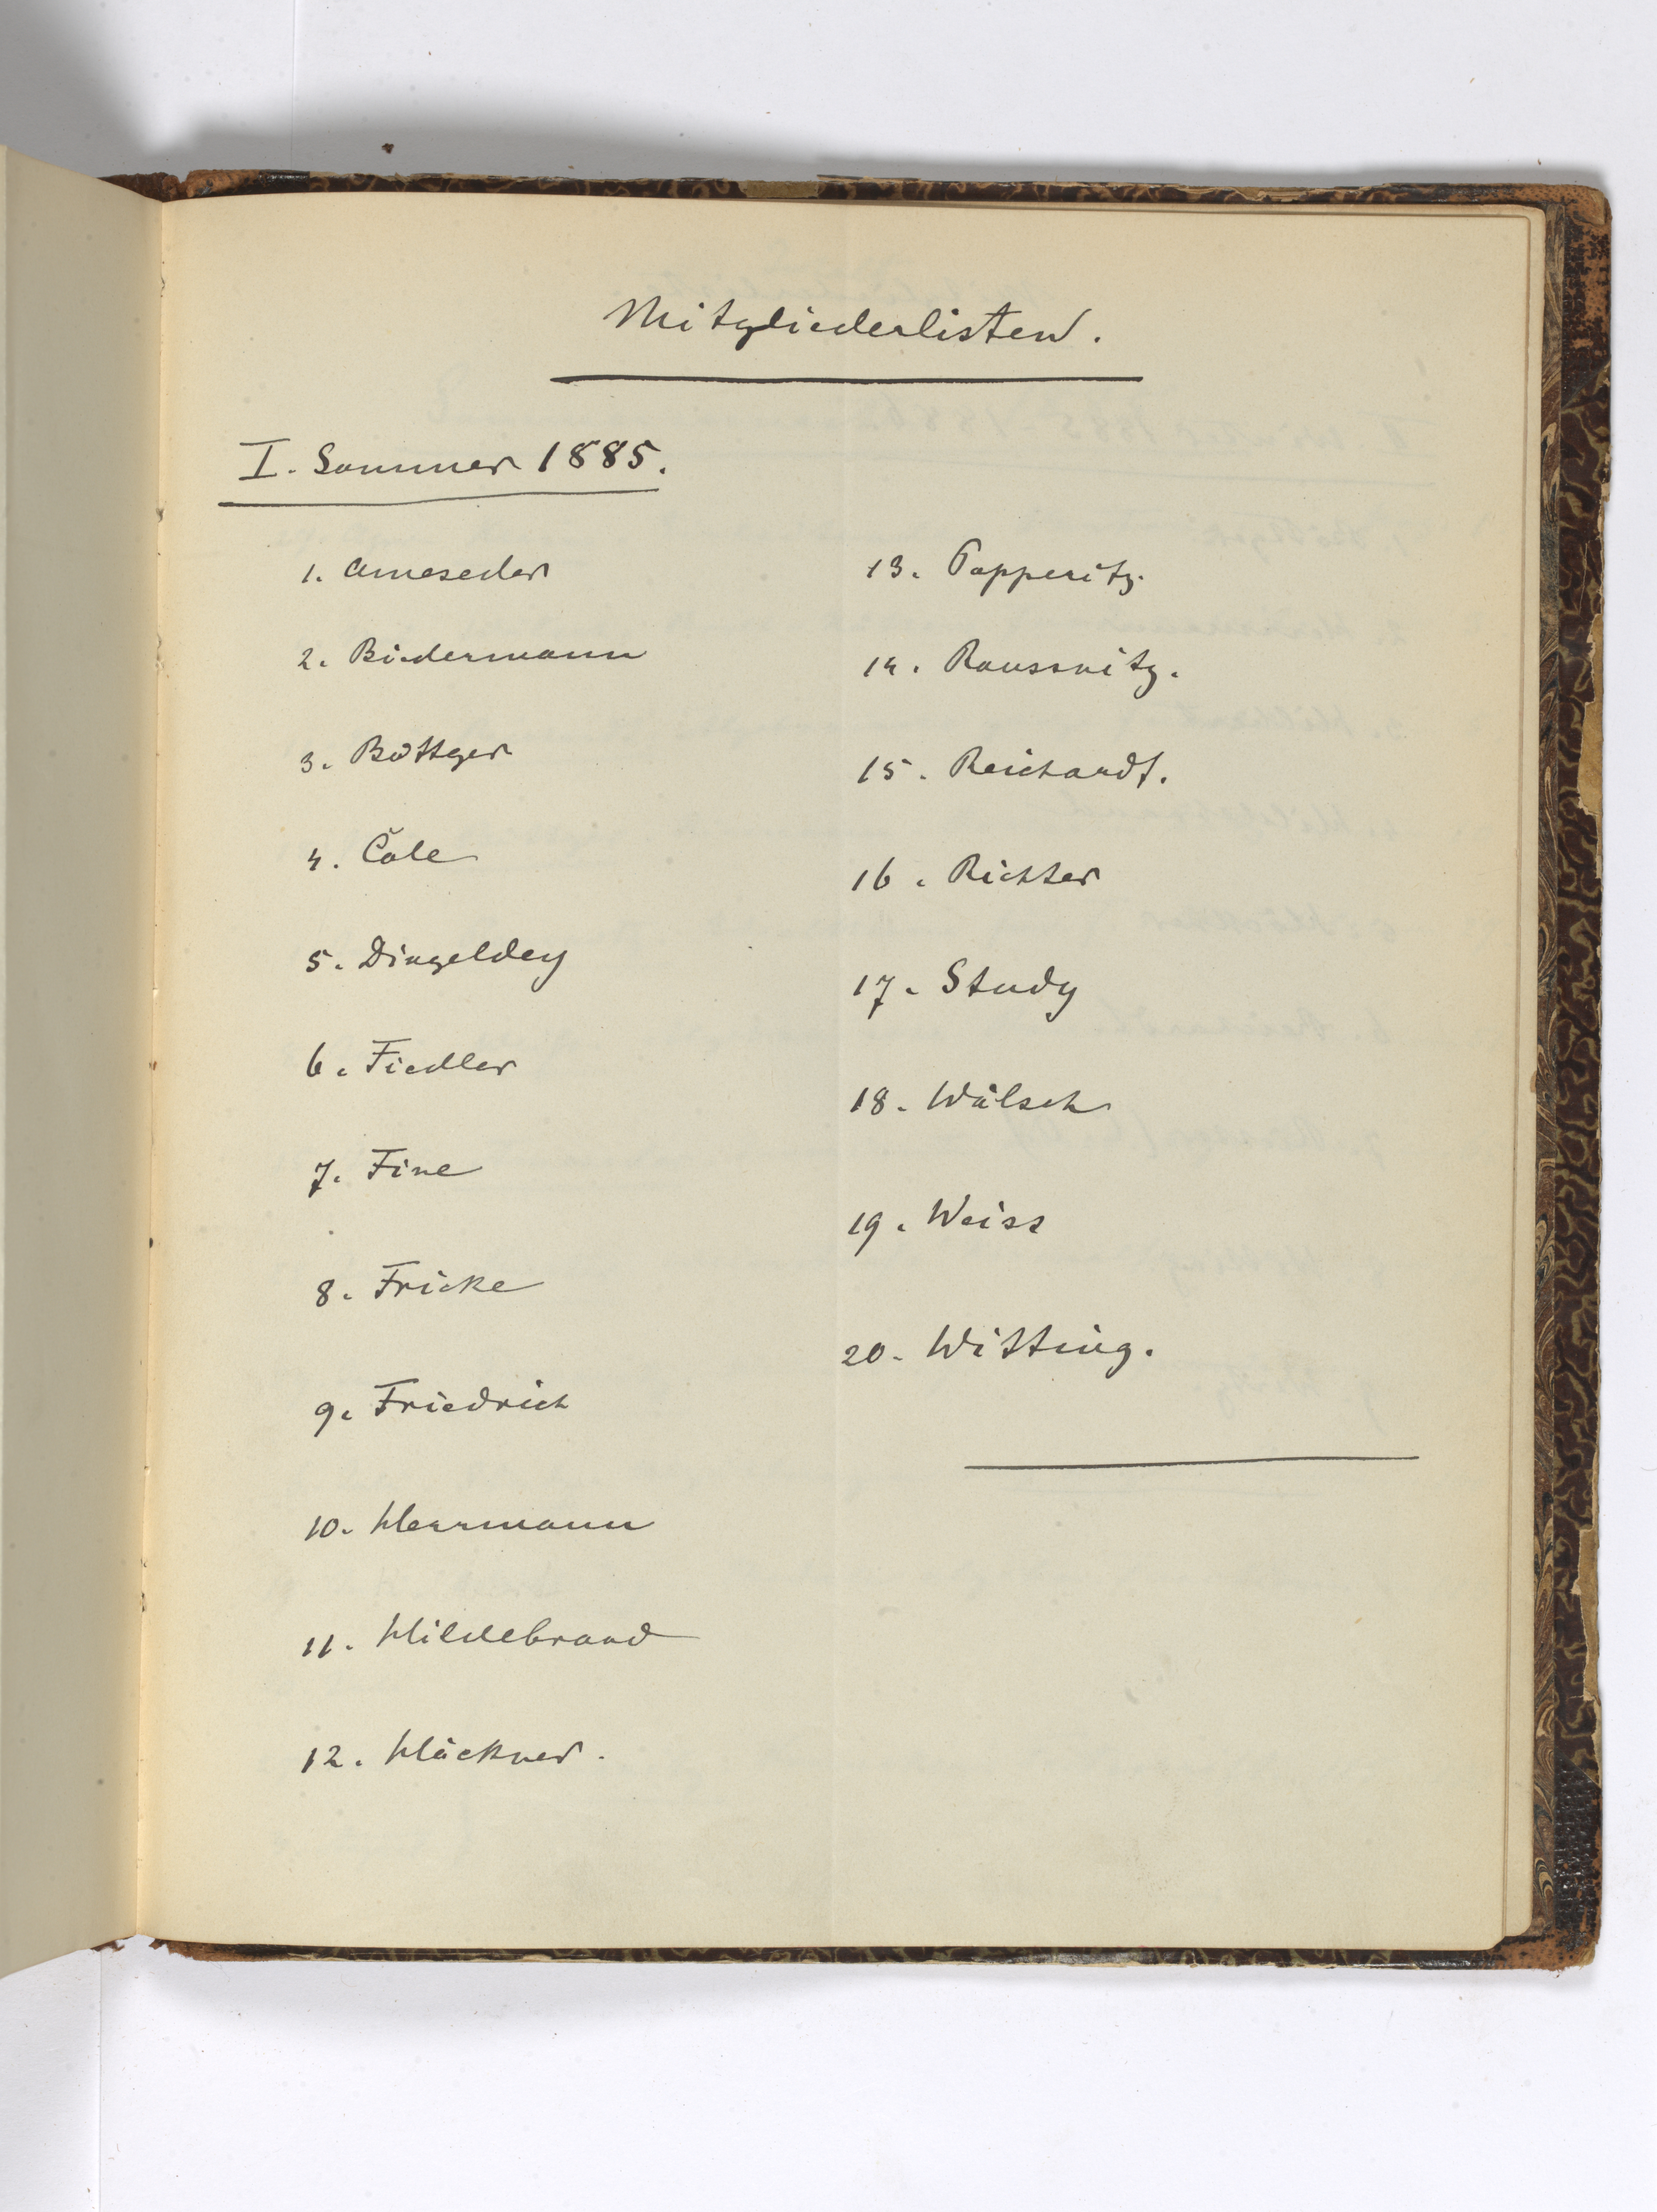 Mitgliederlisten.
I. Sommer 1885.
1. Ameseder
2. Biedermann
3. Böttger
4. Cole
5. Dingeldey
6. Fiedler
7. Fine
8. Fricke
9. Friedrich
10. Herrmann
11. Hildebrand
12. Höckner.
13. Papperitz.
14. Raussnitz.
15. Reichardt.
16. Richter
17. Study
18. Wälsch
19. Weiss
20. Witting.